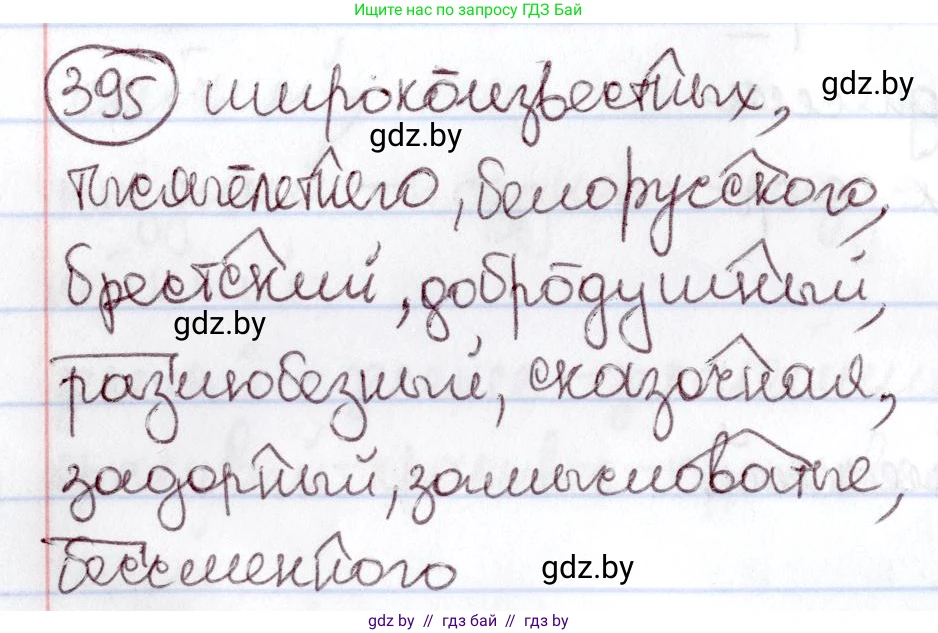 Ищите нас по запросу ГДЗ Бай
395 широкоизвестных,
gdz.by
gdz.by
тысячелетнего, белорусского,
брестский, добродушный,
gdz.by
разлюбезный, сказочная,
задорный, замысловатые,
бессменного
gdz.by
gdz.by // гдз бай // гдз by